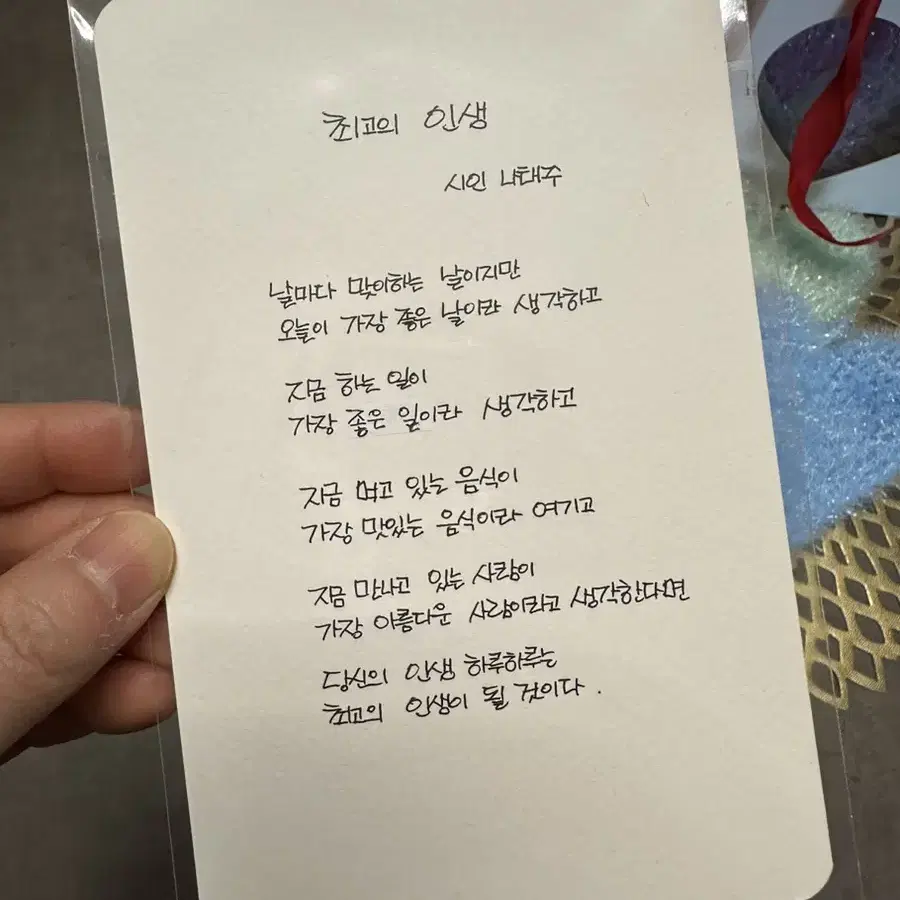 최고의 인생
시인 나태주
날마다 맞이하는 날이지만
오늘이 가장 좋은 날이라 생각하고
지금 하는 일이
가장 좋은 일이라 생각하고
지금 먹고 있는 음식이
가장 맛있는 음식이라 여기고
지금 만나고 있는 사람이
가장 아름다운 사람이라고 생각한다면
당신의 인생 하루하루는
최고의 인생이 될 것이다.